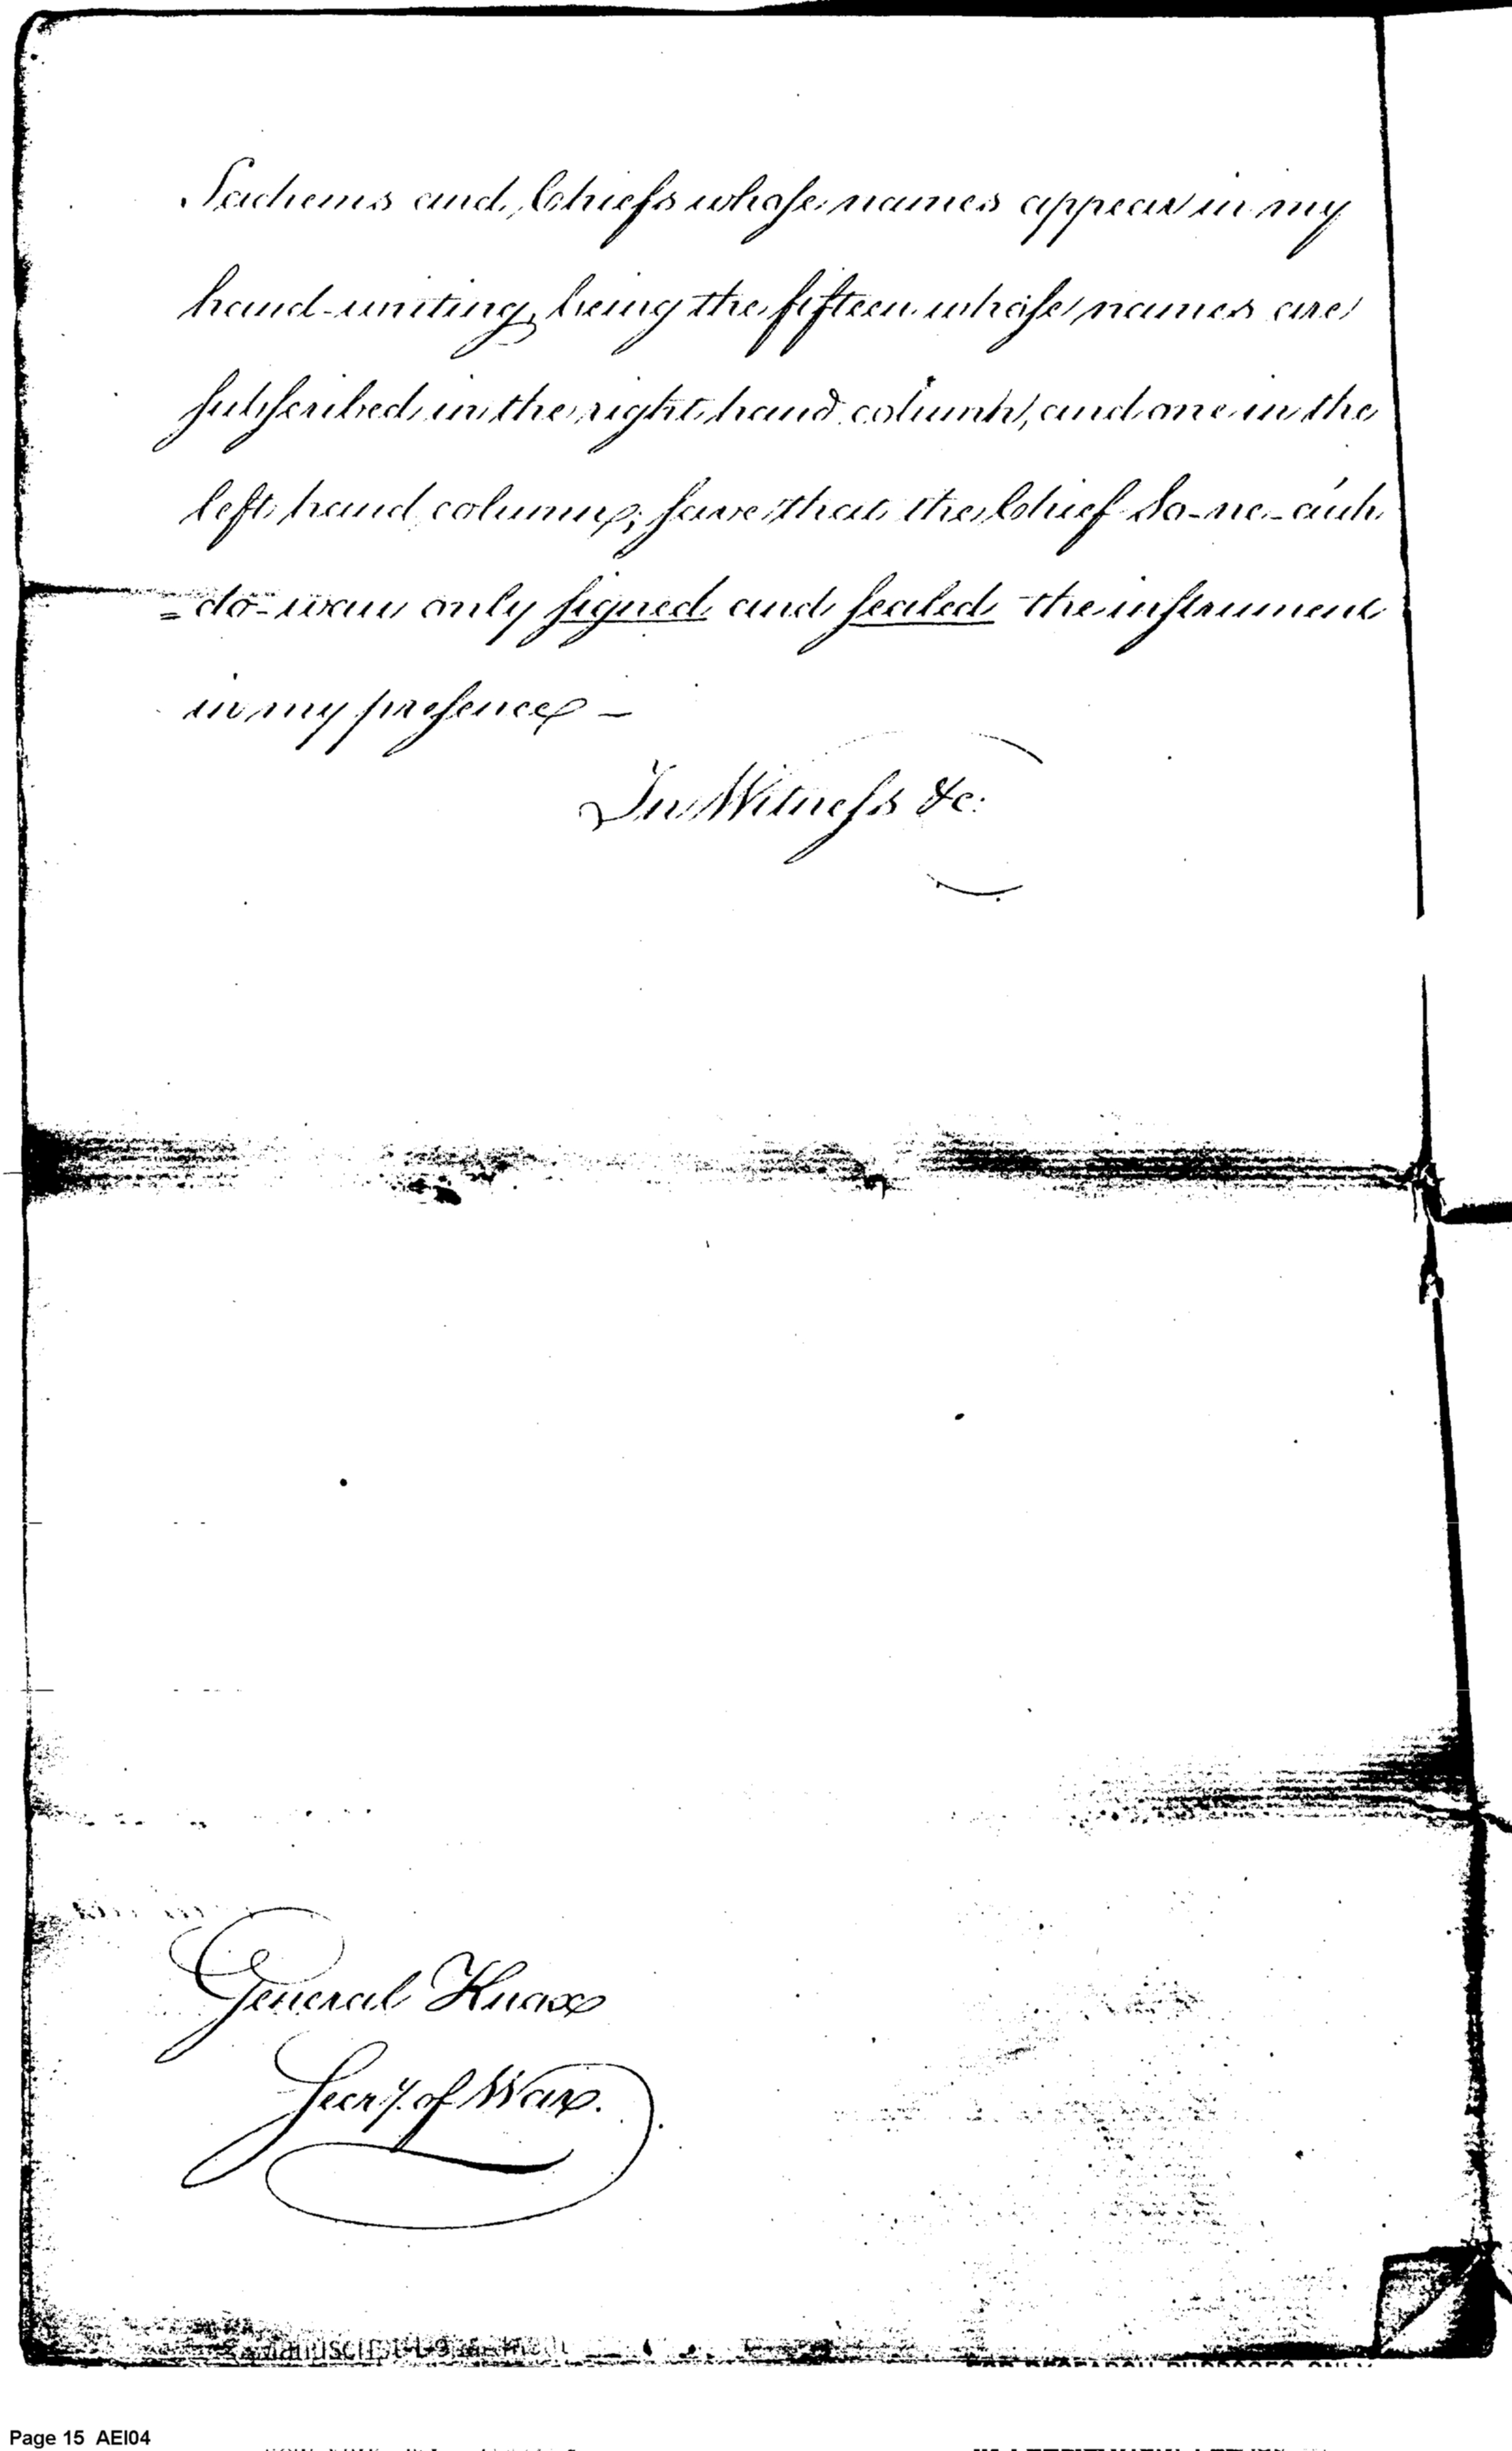 Sachems and Chiefs whose names appear in my
hand-writing, being the fifteen whose names are
subscribed in the right hand column, and one in the
left hand column; save that the Chief So-ne-auh
=do-wau only signed and sealed the instrument
in my presence —
In Witness &c:
General Knox
Secry. of War.
Page 15 AEI04